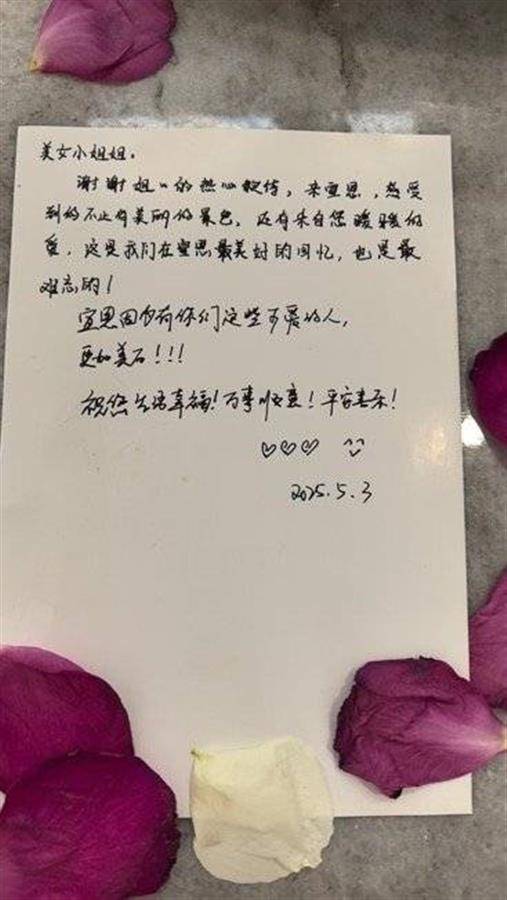 美女小姐姐。
谢谢姐姐的热心款待，来宣恩，感受
到的不止有美丽的景色，还有来自您暖暖的
爱，这是我们在宣恩最美好的回忆，也是最
难忘的！
宣恩因为有你们这些可爱的人，
更加美石！！！
祝您生活幸福！万事顺意！平安喜乐！
♡♡♡ ^^
2025.5.3